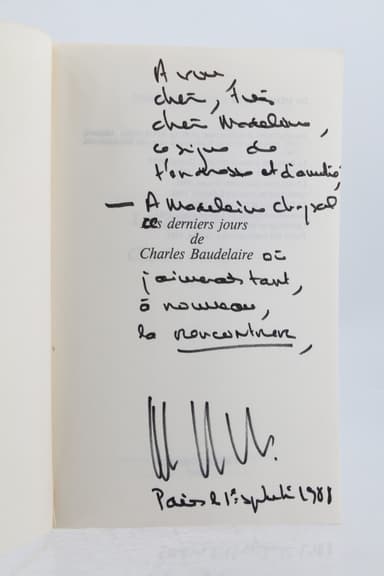 A vous,
chère, très
chère Madeleine,
ce signe de
tendresse et d'amitié,
— A Madeleine Chapsal
ces derniers jours
de
Charles Baudelaire où
j'aimerais tant,
à nouveau,
la rencontrer,
Paris 1988